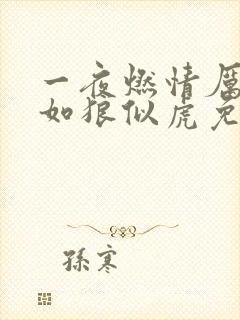 一夜燃情厉
如狼似虎免
孫寒